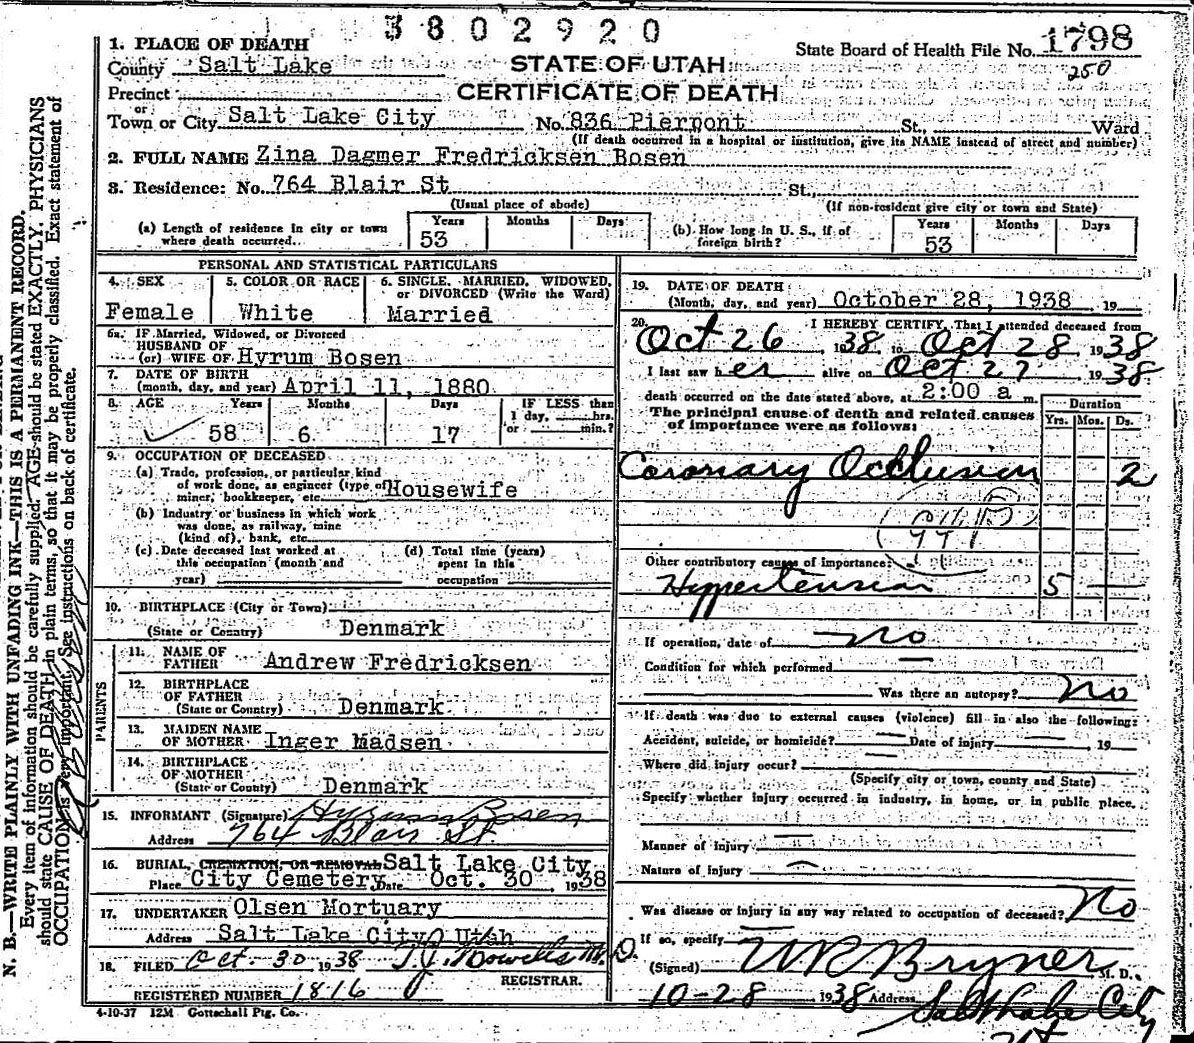 3802920
1. PLACE OF DEATH
County Salt Lake
STATE OF UTAH
State Board of Health File No. 1798
250
Precinct
CERTIFICATE OF DEATH
or
Town or City Salt Lake City No. 836 Pierpont St., Ward
(If death occurred in a hospital or institution, give its NAME instead of street and number)
2. FULL NAME Zina Dagmer Fredricksen Bosen
3. Residence: No. 764 Blair St St.
(Usual place of abode) (If non-resident give city or town and State)
(a) Length of residence in city or town where death occurred Years 53 Months Days
(b) How long in U. S., if of foreign birth? Years 53 Months Days
PERSONAL AND STATISTICAL PARTICULARS
4. SEX Female
5. COLOR OR RACE White
6. SINGLE, MARRIED, WIDOWED, or DIVORCED (Write the Word) Married
6a. IF Married, Widowed, or Divorced
HUSBAND OF
(or) WIFE OF Hyrum Bosen
7. DATE OF BIRTH
(month, day, and year) April 11, 1880
8. AGE Years 58 Months 6 Days 17 IF LESS than 1 day, hrs. or min.?
9. OCCUPATION OF DECEASED
(a) Trade, profession, or particular kind
of work done, as engineer (type of)
miner, bookkeeper, etc. Housewife
(b) Industry or business in which work
was done, as railway, mine
(kind of), bank, etc.
(c) Date deceased last worked at this occupation (month and year)
(d) Total time (years) spent in this occupation
10. BIRTHPLACE (City or Town)
(State or Country) Denmark
PARENTS
11. NAME OF FATHER Andrew Fredricksen
12. BIRTHPLACE OF FATHER
(State or Country) Denmark
13. MAIDEN NAME OF MOTHER Inger Madsen
14. BIRTHPLACE OF MOTHER
(State or County) Denmark
15. INFORMANT (Signature) Hyrum Bosen
Address 764 Blair St.
16. BURIAL, CREMATION, OR REMOVAL Salt Lake City
Place City Cemetery Date Oct. 30, 1938
17. UNDERTAKER Olsen Mortuary
Address Salt Lake City, Utah
18. FILED Oct. 30 1938 T. J. Howells M. D.
REGISTRAR.
REGISTERED NUMBER 1816
4-10-37 12M Gottschall Ptg. Co.
19. DATE OF DEATH
(Month, day, and year) October 28, 1938, 19
20. I HEREBY CERTIFY, That I attended deceased from
Oct 26, 1938 to Oct 28, 1938
I last saw her alive on Oct 27 1938
death occurred on the date stated above, at 2:00 a m.
The principal cause of death and related causes
of importance were as follows:
Duration
Yrs. Mos. Ds.
Coronary Occlusion 2
Other contributory causes of importance:
Hypertension 5
If operation, date of no
Condition for which performed
Was there an autopsy? no
If death was due to external causes (violence) fill in also the following:
Accident, suicide, or homicide? Date of injury , 19
Where did injury occur?
(Specify city or town, county and State)
Specify whether injury occurred in industry, in home, or in public place.
Manner of injury
Nature of injury
Was disease or injury in any way related to occupation of deceased? No
If so, specify
(Signed) W R Bryner M. D.
10-28 1938 Address Salt Lake City
N. B.—WRITE PLAINLY WITH UNFADING INK—THIS IS A PERMANENT RECORD.
Every item of information should be carefully supplied. AGE should be stated EXACTLY. PHYSICIANS
should state CAUSE OF DEATH in plain terms, so that it may be properly classified. Exact statement of
OCCUPATION is very important. See instructions on back of certificate.